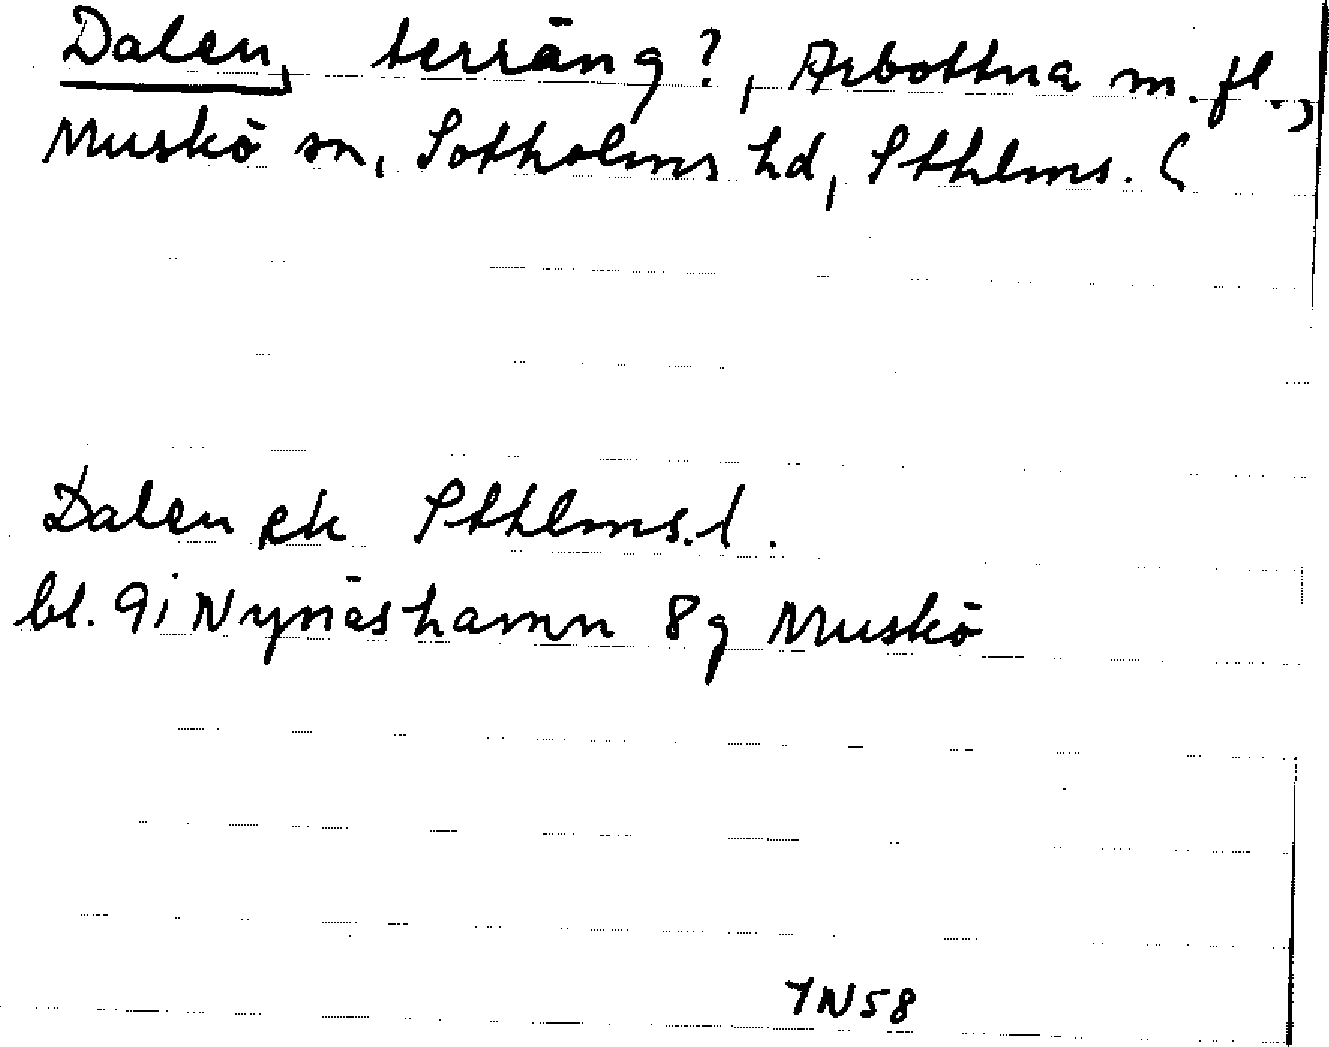 Dalen, terräng?, Arbottna m. fl.,
Muskö sn, Sotholms hd, Sthlms. l
Dalen ek Sthlms. l.
bl. 9i Nynäshamn 8g Muskö
YN58